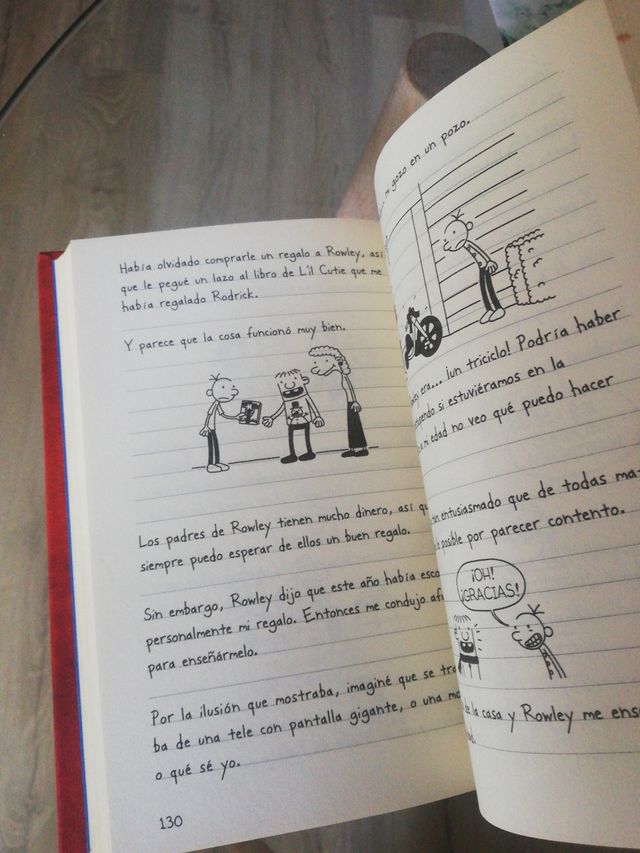 Había olvidado comprarle un regalo a Rowley, así
que le pegué un lazo al libro de L'il Cutie que me
había regalado Rodrick.
Y parece que la cosa funcionó muy bien.
Los padres de Rowley tienen mucho dinero, así qu
siempre puedo esperar de ellos un buen regalo.
Sin embargo, Rowley dijo que este año había esco
personalmente mi regalo. Entonces me condujo af
para enseñármelo.
Por la ilusión que mostraba, imaginé que se tra
ba de una tele con pantalla gigante, o una mo
o qué sé yo.
130
mi gozo en un pozo.
era... ¡un triciclo! Podría haber
si estuviéramos en la
a mi edad no veo qué puedo hacer
entusiasmado que de todas ma-
posible por parecer contento.
¡OH!
¡GRACIAS!
de la casa y Rowley me ens